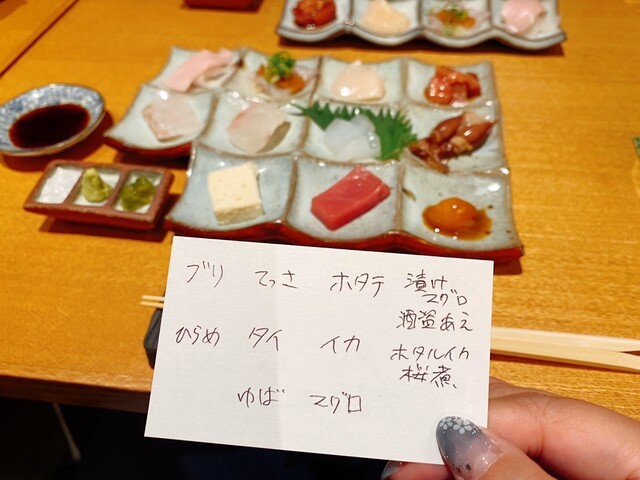 ブリ てっさ ホタテ 漬け
マグロ
酒盗あえ
ひらめ タイ イカ ホタルイカ
桜煮
ゆば マグロ